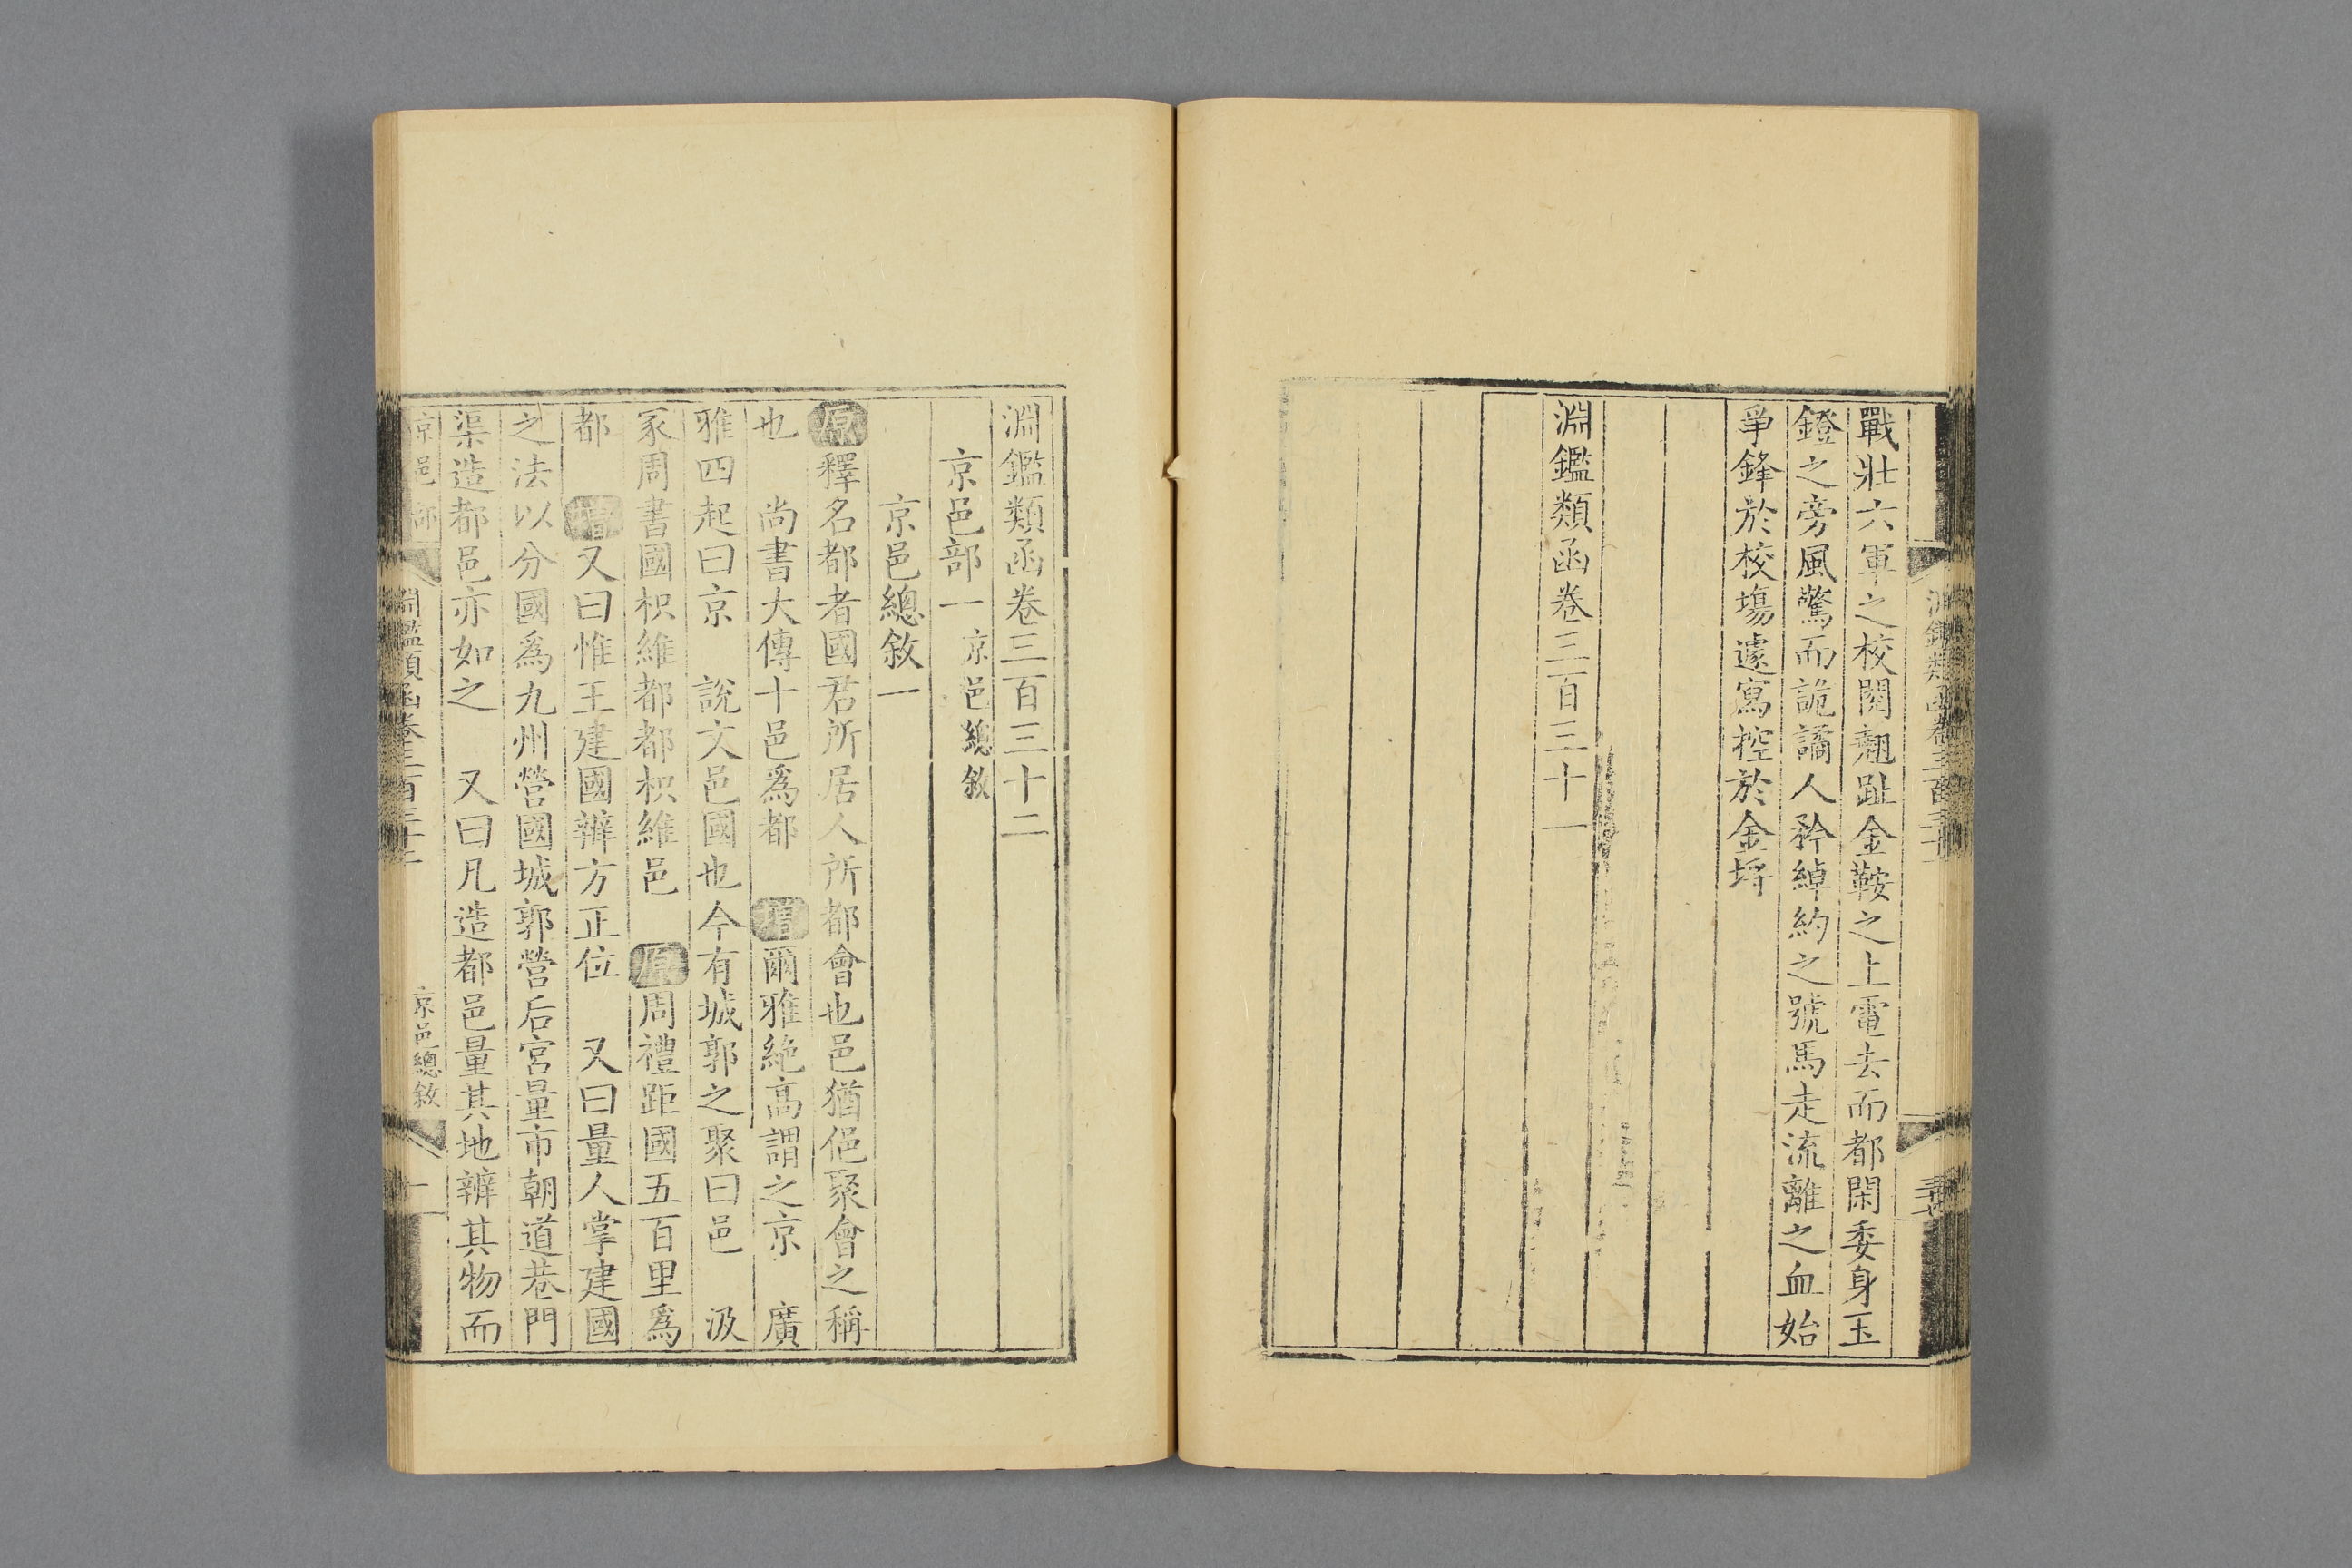 戰壯六軍之校閱翹趾金鞍之上電去而都閑委身玉
鐙之旁風驚而詭譎人矜綽約之號馬走流離之血始
爭鋒於校塲遽寫控於金埒
淵鑑類函卷三百三十一
淵鑑類函卷三百三十二
京邑部一 京邑總敘
京邑總敘一
原釋名都者國君所居人所都會也邑猶俋聚會之稱
也 尚書大傳十邑爲都 增爾雅絶高謂之京 廣
雅四起曰京 說文邑國也今有城郭之聚曰邑 汲
冢周書國枳維都都枳維邑 原周禮距國五百里爲
都 增又曰惟王建國辨方正位 又曰量人掌建國
之法以分國爲九州營國城郭營后宮量市朝道巷門
渠造都邑亦如之 又曰凡造都邑量其地辨其物而
淵鑑類函卷三百三十二 京邑總敘